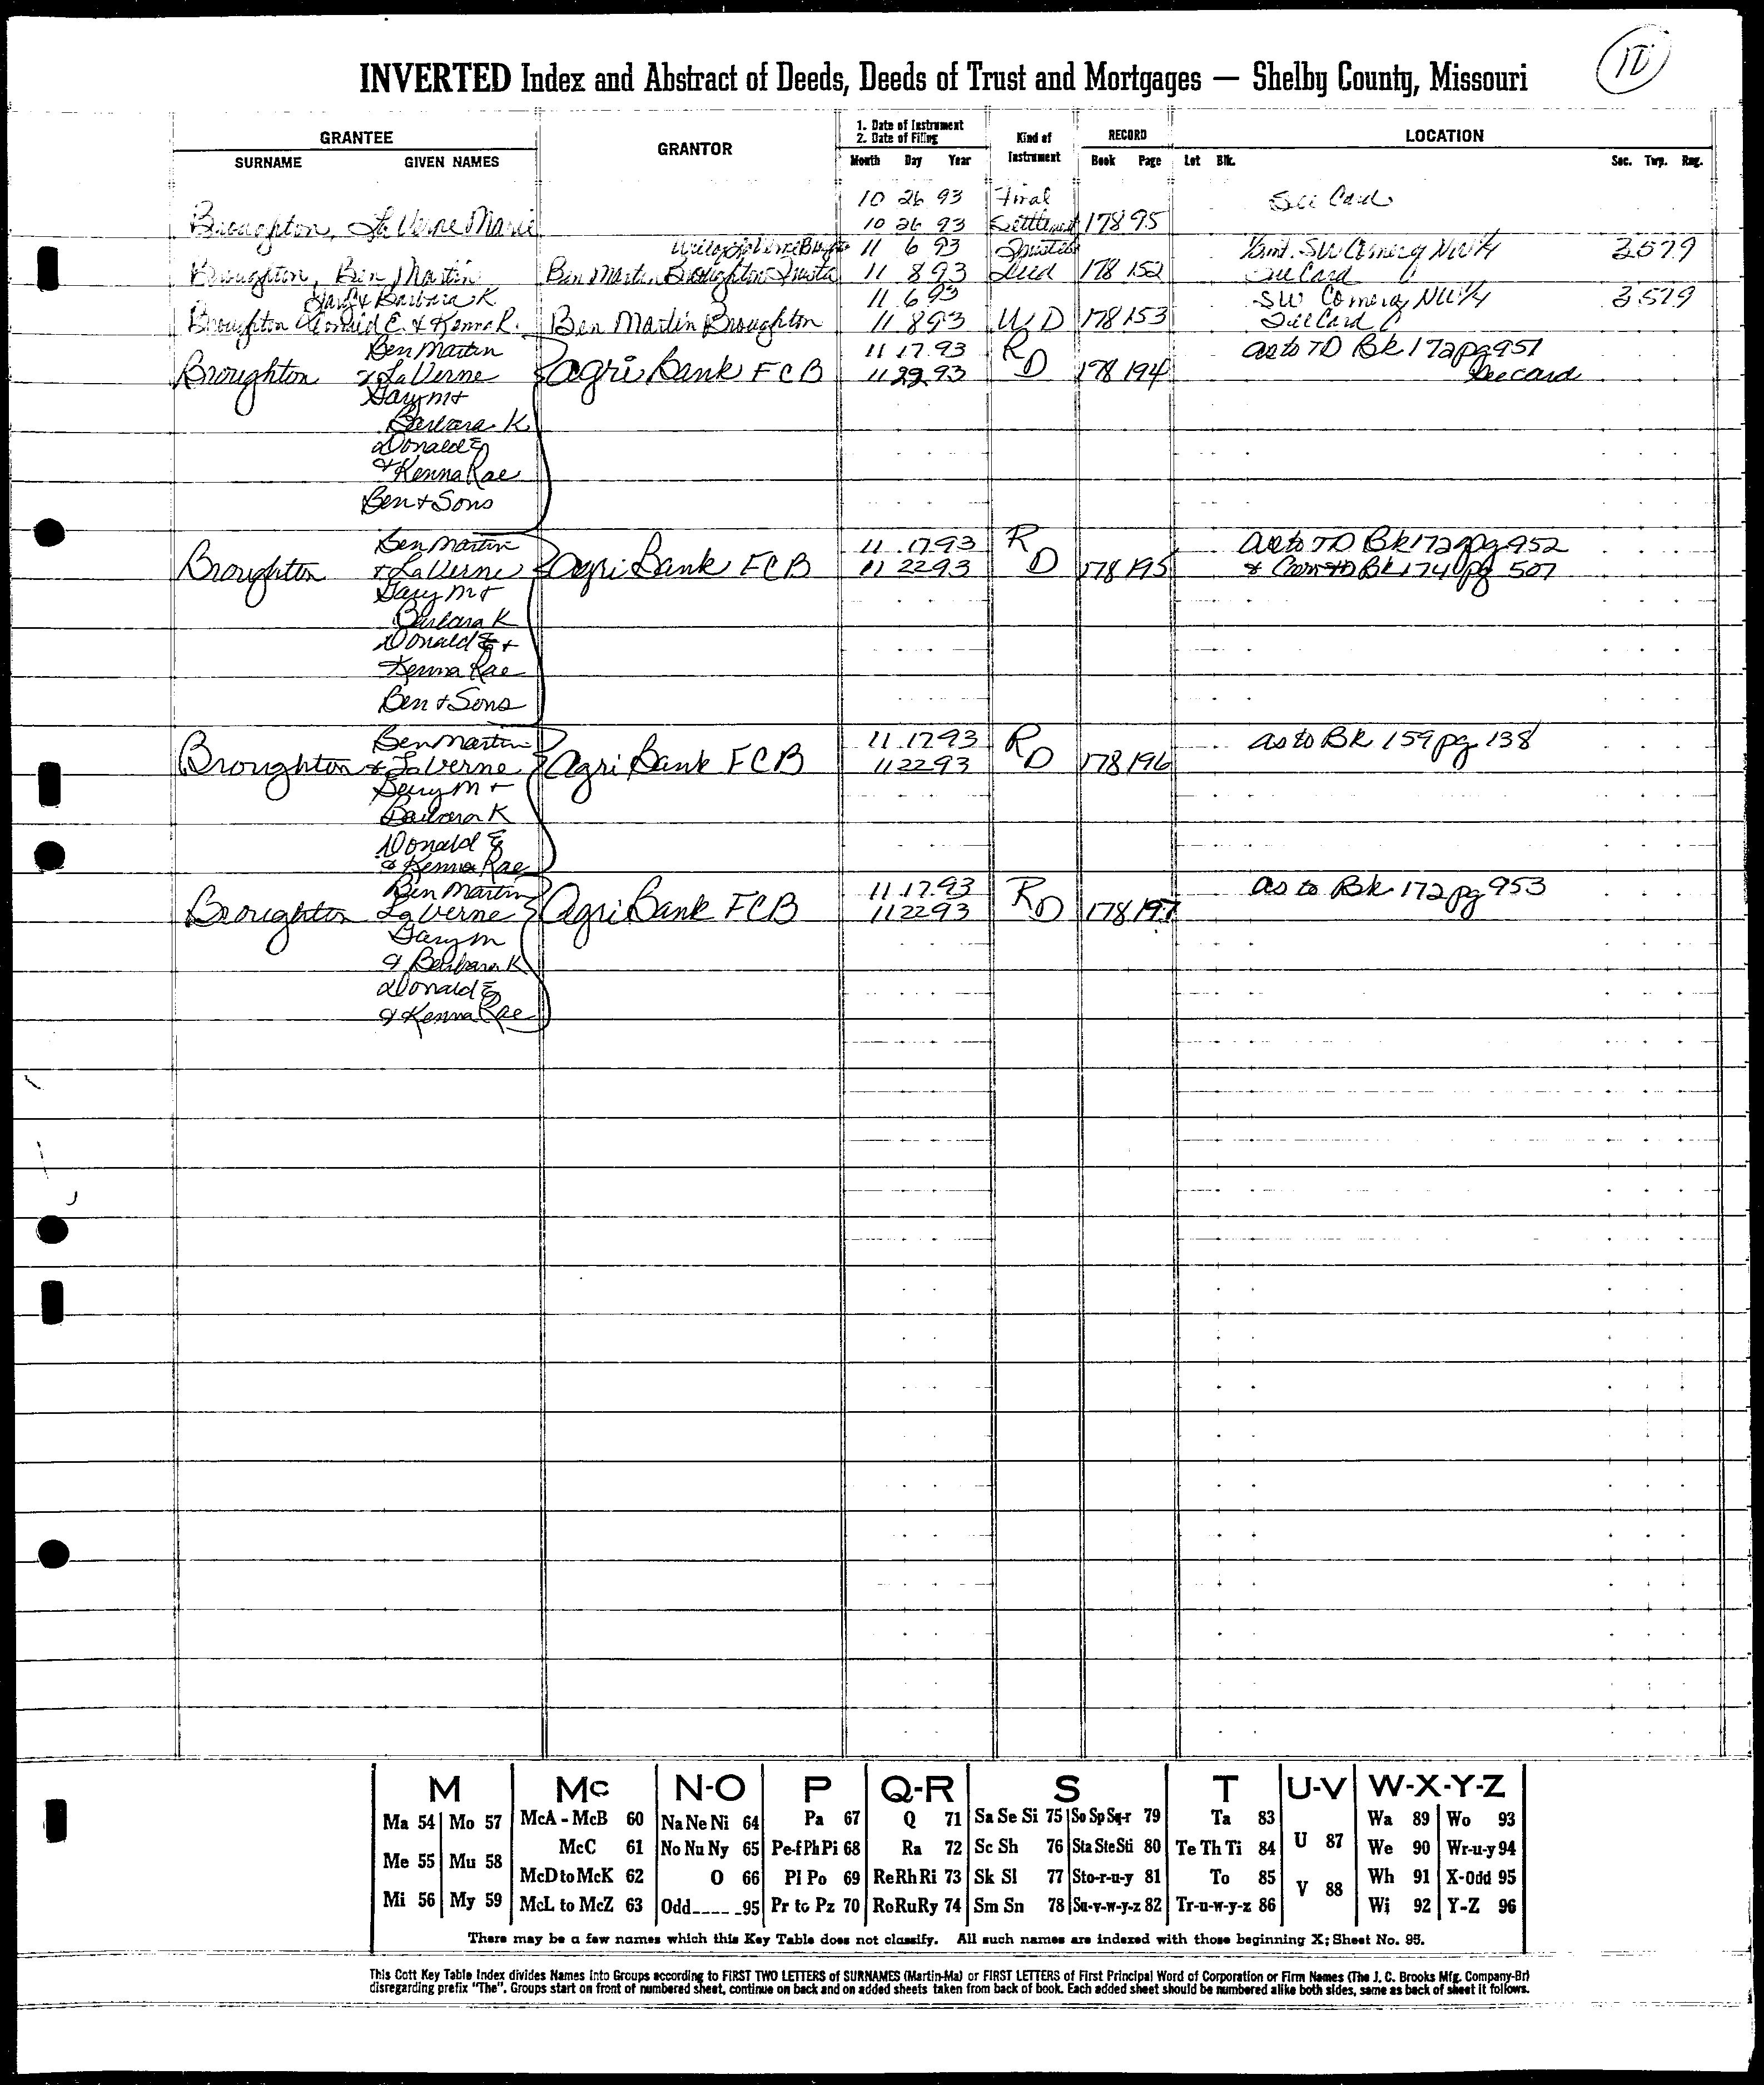 10
INVERTED Index and Abstract of Deeds, Deeds of Trust and Mortgages — Shelby County, Missouri
GRANTEE
SURNAME GIVEN NAMES
GRANTOR
1. Date of Instrument
2. Date of Filing
Month Day Year
Kind of
Instrument
RECORD
Book Page
LOCATION
Lot Blk. Sec. Twp. Rng.
10 26 93 Final See Card
Broughton, La Verne Marie 10 26 93 Settlement 178 95
11 6 93 SW Corner of NW 1/4 3 57 9
Broughton, Ben Martin Ben Martin Broughton 11 8 93 Deed 178 152 See Card
Gary & Barbara K 11 6 93 SW Corner of NW 1/4 3 57 9
Broughton Donald E. & Kenna R. Ben Martin Broughton 11 8 93 WD 178 153 See Card
Ben Martin 11 17 93 R as to TD Bk 172 pg 951
Broughton & LaVerne Agri Bank FCB 11 22 93 D 178 194 See card
Gary M +
Barbara K
Donald E
& Kenna Rae
Ben + Sons
Ben Martin 11 17 93 R as to TD Bk 172 pg 952
Broughton + LaVerne Agri Bank FCB 11 22 93 D 178 195 & Bk 174 pg 507
Gary M +
Barbara K
Donald E +
Kenna Rae
Ben + Sons
Ben Martin 11 17 93 R as to Bk 159 pg 138
Broughton & LaVerne Agri Bank FCB 11 22 93 D 178 196
Gary M +
Barbara K
Donald E
& Kenna Rae
Ben Martin 11 17 93 R as to Bk 172 pg 953
Broughton LaVerne Agri Bank FCB 11 22 93 D 178 197
Gary M
& Barbara K
Donald E
& Kenna Rae
M Mc N-O P Q-R S T U-V W-X-Y-Z
Ma 54 Mo 57 McA - McB 60 Na Ne Ni 64 Pa 67 Q 71 Sa Se Si 75 So Sp Sq-r 79 Ta 83 Wa 89 Wo 93
McC 61 No Nu Ny 65 Pe-f Ph Pi 68 Ra 72 Sc Sh 76 Sta Ste Sti 80 Te Th Ti 84 U 87 We 90 Wr-u-y 94
Me 55 Mu 58
McD to McK 62 O 66 Pl Po 69 Re Rh Ri 73 Sk Sl 77 Sto-r-u-y 81 To 85 V 88 Wh 91 X-Odd 95
Mi 56 My 59 McL to McZ 63 Odd_____95 Pr to Pz 70 Ro Ru Ry 74 Sm Sn 78 Su-v-w-y-z 82 Tr-u-w-y-z 86 Wi 92 Y-Z 96
There may be a few names which this Key Table does not classify. All such names are indexed with those beginning X; Sheet No. 95.
This Cott Key Table Index divides Names into Groups according to FIRST TWO LETTERS of SURNAMES (Martin-Ma) or FIRST LETTERS of First Principal Word of Corporation or Firm Names (The J. C. Brooks Mfg. Company-Br)
disregarding prefix "The". Groups start on front of numbered sheet, continue on back and on added sheets taken from back of book. Each added sheet should be numbered alike both sides, same as back of sheet it follows.